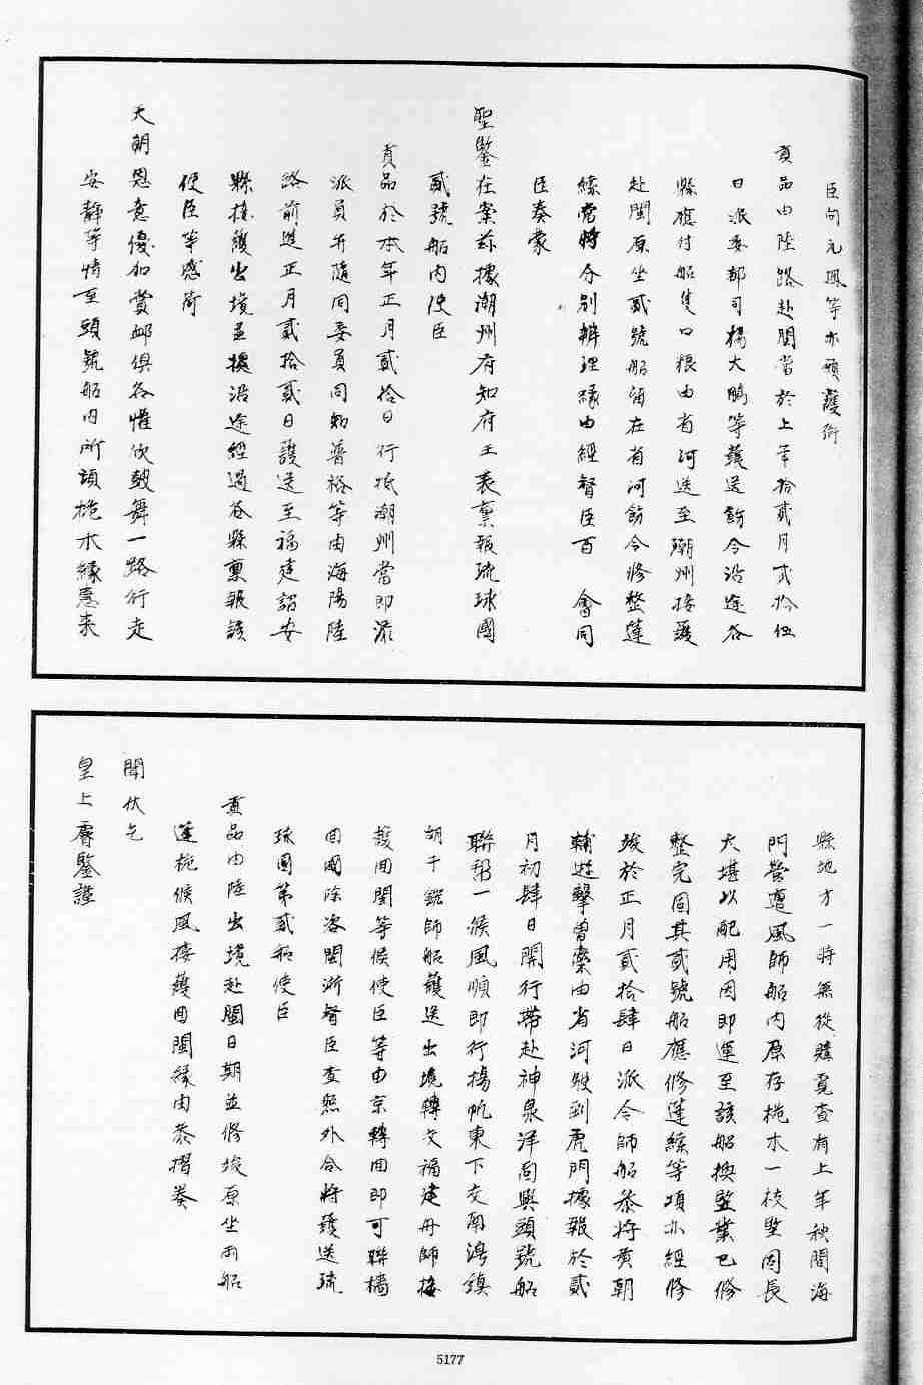 臣向元鳳等亦願護衛
貢品由陸路赴閩當於上年拾貳月貳拾伍
日派委都司楊大鵬等護送飭令沿途各
縣應付船隻口粮由省河送至潮州接護
赴閩原坐貳號船酒在省河飭令修整蓬
緣党將分別辦理緣由經督臣百 會同
臣奏蒙
聖鑒在案茲據潮州府知府王表稟報琉球國
貳號船內使臣
貢品於本年正月貳拾日行抵潮州當即派
派員弁隨同委員同知普格等由海陽陸
路前進正月貳拾貳日護送至福建詔安
縣接護出境並據沿途經過各縣稟報該
使臣等感荷
天朝恩意優加賞卹俱各懽欣鼓舞一路行走
安靜等情至頭號船內所須桅木緣惠來
縣地方一時無從購覓查有上年秋間海
門營遭風師船內原存桅木一枝堅固長
大堪以配用因即運至該船換竪業已修
整完固其貳號船應修蓬緣等項亦經修
竣於正月貳拾肆日派令師船叅將黃朝
輔遊擊曾 由省河駛到虎門據報於貳
月初肆日開行帶赴神泉洋面與頭號船
聯䑸一候風順即行揚帆東下交南澳鎮
胡于鋐師船護送出境轉交福建舟師接
護回閩等候使臣等由京轉回即可聯檣
回國除咨閩浙督臣查照外合將護送琉
球國第貳船使臣
貢品由陸出境赴閩日期並修竣原坐兩船
蓬桅候風接護回閩緣由恭摺奏
聞伏乞
皇上睿鑒謹
5177